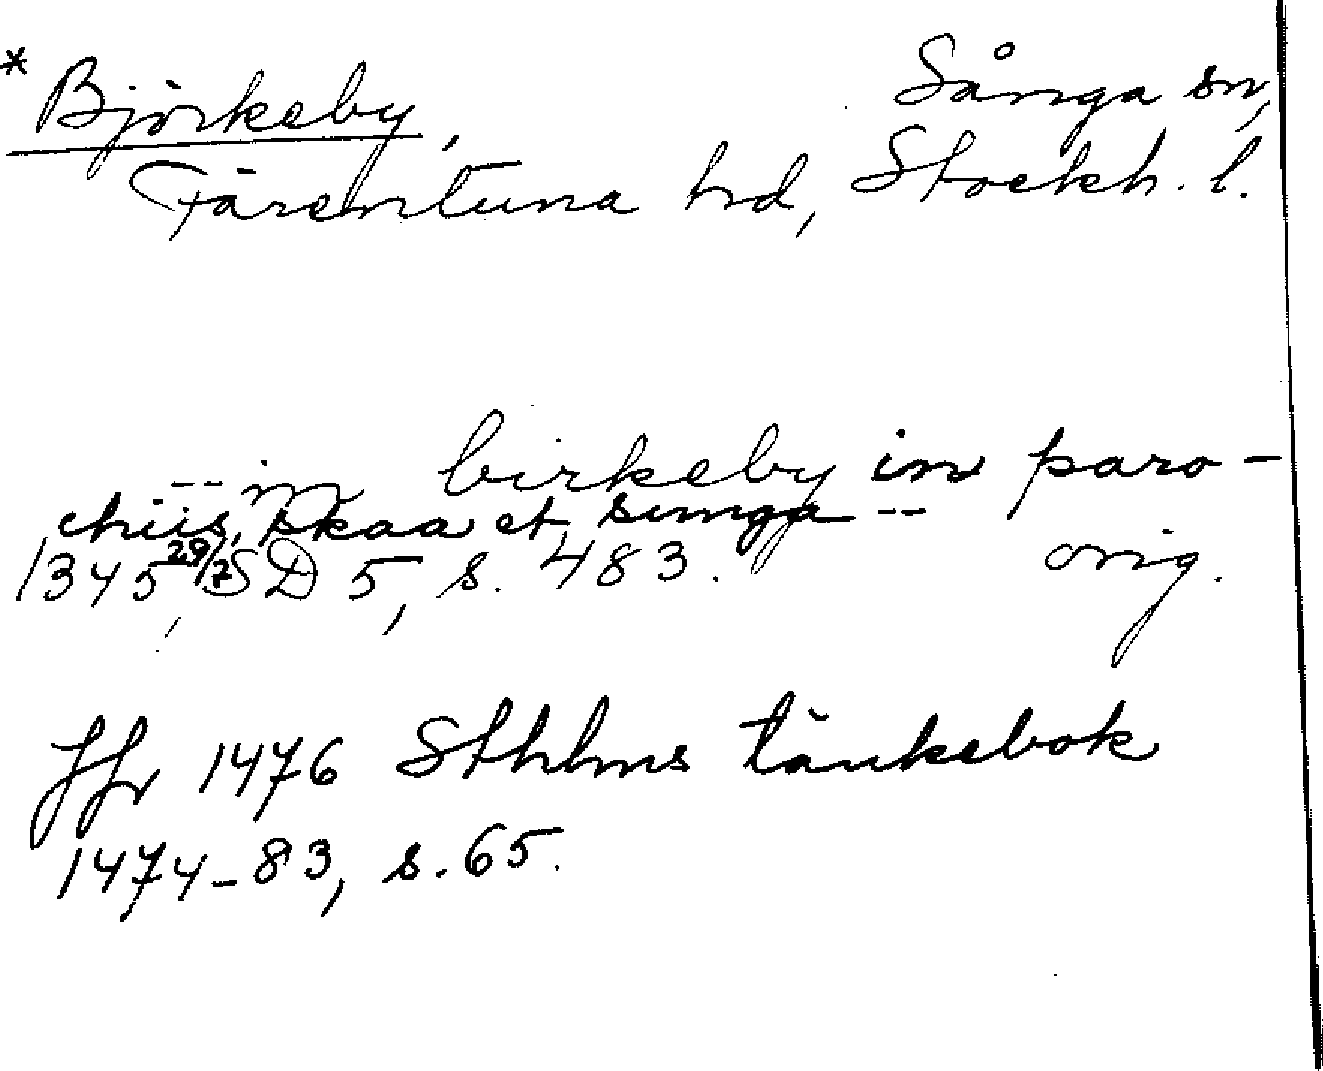 * Björkeby, Sånga sn,
Färentuna hd, Stockh. l.
-- in birkeby in paro-
chiis, skaa et sunga --
1345 29/7, SD 5, s. 483. orig.
Jfr 1476 Sthlms tänkebok
1474-83, s. 65.